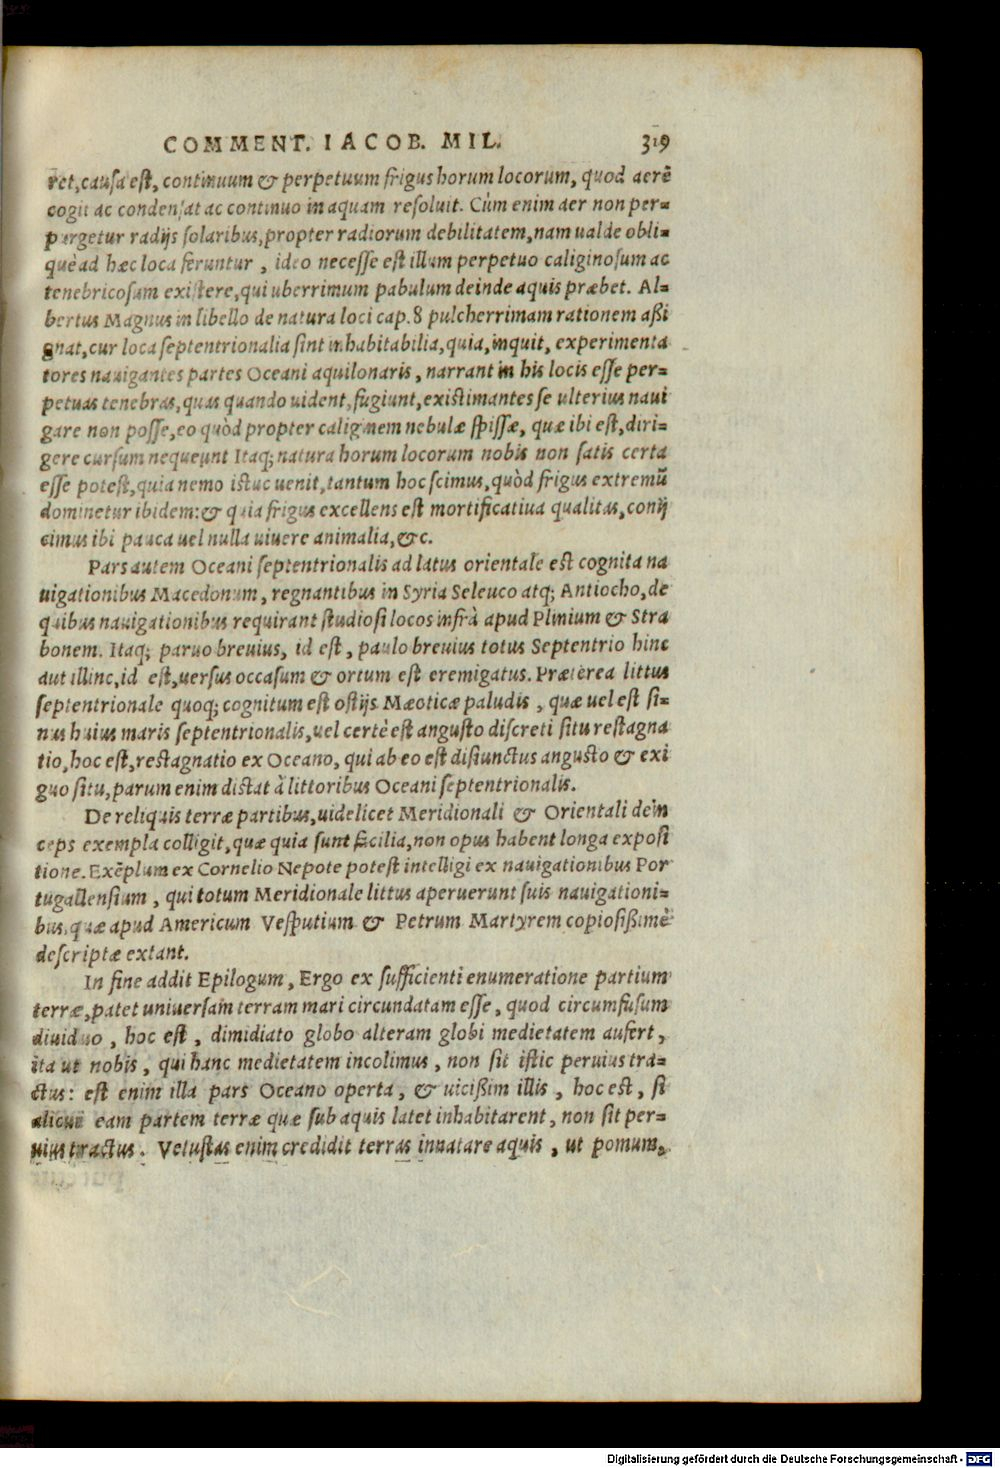 COMMENT. IACOB. MIL. 319
ret, causa est, continuum & perpetuum frigus horum locorum, quod aerē
cogit ac condensat ac continuo in aquam resoluit. Cùm enim aer non per-
purgetur radijs solaribus, propter radiorum debilitatem, nam ualde obli-
què ad hæc loca feruntur, ideo necesse est illum perpetuo caliginosum ac
tenebricosum existere, qui uberrimum pabulum deinde aquis præbet. Al-
bertus Magnus in libello de natura loci cap. 8 pulcherrimam rationem aßi
gnat, cur loca septentrionalia sint inhabitabilia, quia, inquit, experimenta
tores nauigantes partes Oceani aquilonaris, narrant in his locis esse per-
petuas tenebras, quas quando uident, fugiunt, existimantes se ulterius naui
gare non posse, eo quòd propter caliginem nebulæ spissæ, quæ ibi est, diri-
gere cursum nequeunt Itaq; natura horum locorum nobis non satis certa
esse potest, quia nemo istuc uenit, tantum hoc scimus, quòd frigus extremū
dominetur ibidem: & quia frigus excellens est mortificatiua qualitas, conij
cimus ibi pauca uel nulla uiuere animalia, &c.
Pars autem Oceani septentrionalis ad latus orientale est cognita na
uigationibus Macedonum, regnantibus in Syria Seleuco atq; Antiocho, de
quibus nauigationibus requirant studiosi locos infrà apud Plinium & Stra
bonem. Itaq; paruo breuius, id est, paulo breuius totus Septentrio hinc
aut illinc, id est, uersus occasum & ortum est eremigatus. Præterea littus
septentrionale quoq; cognitum est ostijs Mæoticæ paludis, quæ uel est si-
nus huius maris septentrionalis, uel certè est angusto discreti situ restagna
tio, hoc est, restagnatio ex Oceano, qui ab eo est disiunctus angusto & exi
guo situ, parum enim distat à littoribus Oceani septentrionalis.
De reliquis terræ partibus, uidelicet Meridionali & Orientali dein
ceps exempla colligit, quæ quia sunt facilia, non opus habent longa exposi
tione. Exēplum ex Cornelio Nepote potest intelligi ex nauigationibus Por
tugallensium, qui totum Meridionale littus aperuerunt suis nauigationi-
bus, quæ apud Americum Vesputium & Petrum Martyrem copiosißimè
descriptæ extant.
In fine addit Epilogum, Ergo ex sufficienti enumeratione partium
terræ, patet uniuersam terram mari circundatam esse, quod circumfusum
diuiduo, hoc est, dimidiato globo alteram globi medietatem aufert,
ita ut nobis, qui hanc medietatem incolimus, non sit istic peruius tra-
ctus: est enim illa pars Oceano operta, & uicißim illis, hoc est, si
alicui eam partem terræ quæ sub aquis latet inhabitarent, non sit per-
uius tractus. Vetustas enim credidit terras innatare aquis, ut pomum,
Digitalisierung gefördert durch die Deutsche Forschungsgemeinschaft - DFG